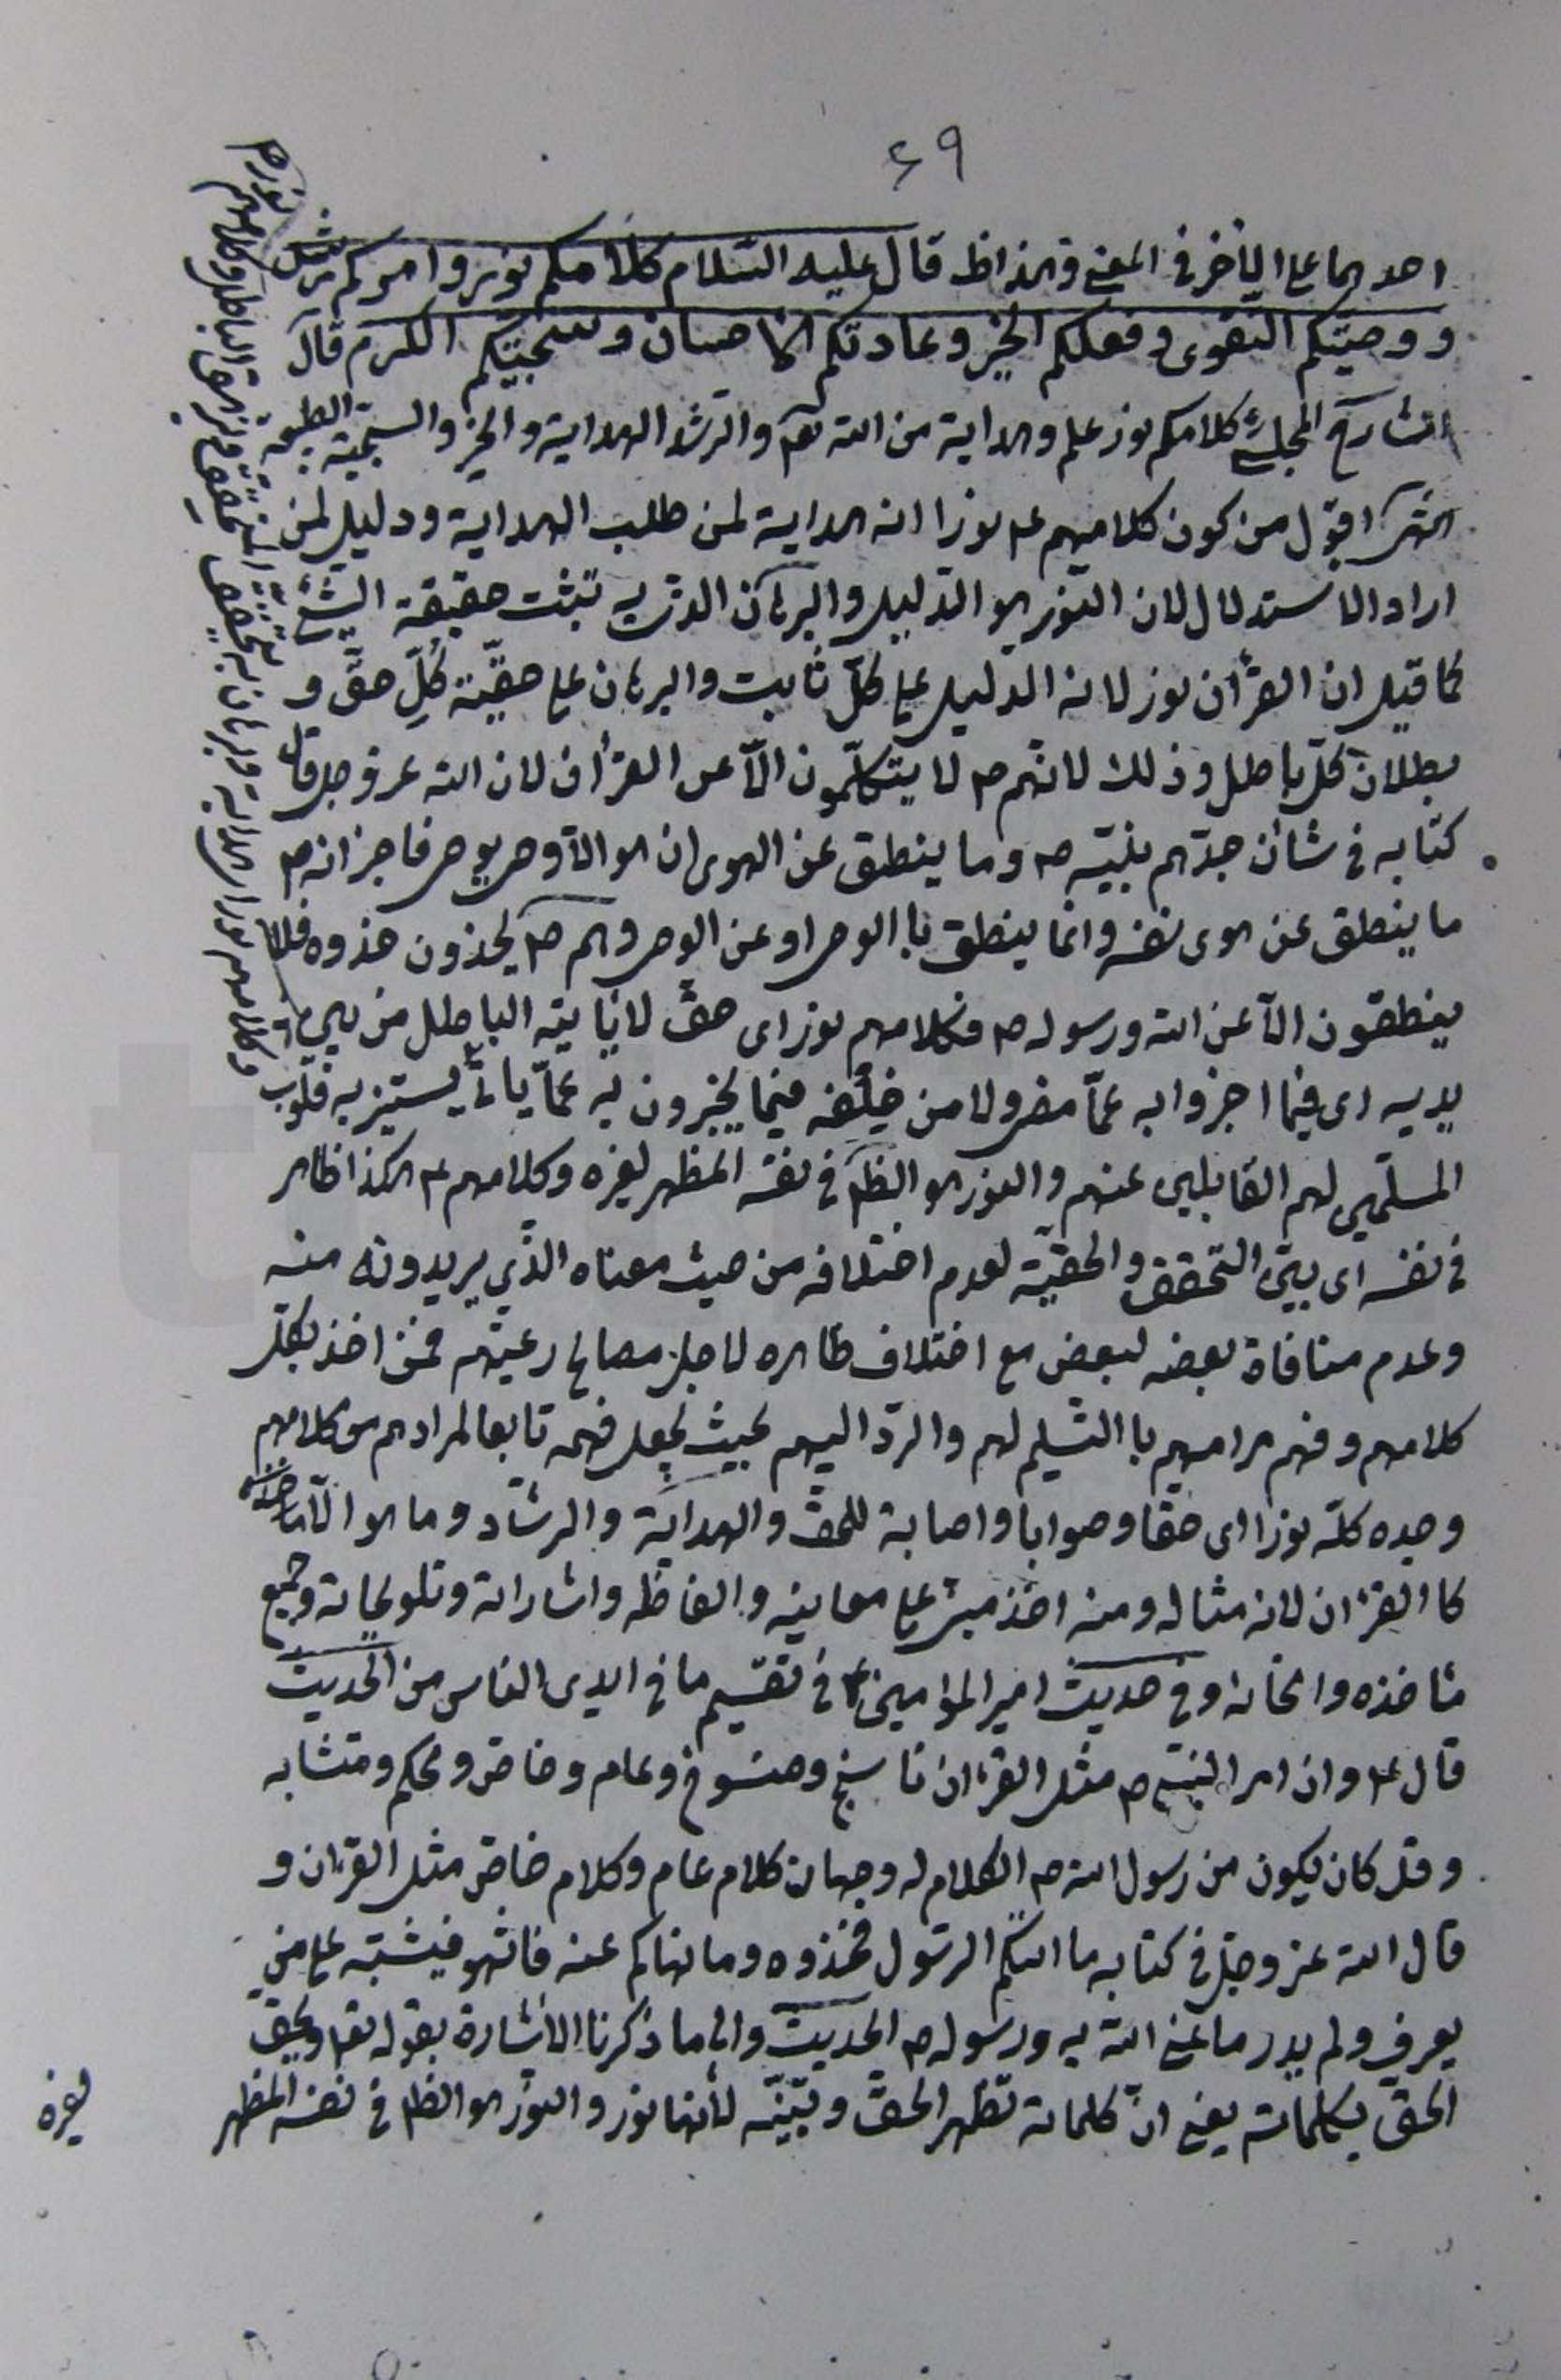 ٤٩
احدهما على الآخر في المعنى وهذا ظ قال عليه السّلام كلامكم نور وامركم رشد
ووصيتكم التقوى وفعلكم الخير وعادتكم الاحسان وسجيتكم الكرم قال
الشارح المجلسي كلامكم نور علم وهداية من الله تعم والرشد الهداية والخير والسجية الطبيعة
انتهى اقول من كون كلامهم ع نورا انه هداية لمن طلب الهداية ودليل لمن
اراد الاستدلال لان النور هو الدليل والبرهان الذي به تبثت حقيقة الشيئ
كما قيل ان القرأن نور لانه الدليل على كلّ ثابت والبرهان على حقيّة كلِّ حقّ و
بطلان كلّ باطل وذلك لانهم ع لا يتكلّمون الّا عن القرأن لان الله عز وجل قال
كتابه في شأن جدّهم نبيّه ص وما ينطق عن الهوى ان هو الّا وحي يوحى فاخبر انه ص
ما ينطق عن هوى نفسه وانما ينطق با الوحى او عن الوحى وهم ع يحذون حذوه فلا
ينطقون الّا عن الله ورسوله ص فكلامهم نور اى حقّ لا يأتيه الباطل من بين
يديه اى فيما اخبروا به عمّا مضى ولا من خلفه فيما يخبرون به عمّا يأتي يستنير به قلوب
المسلّمين لهم القابلين عنهم والنور هو الظم في نفسه المظهر لغيره وكلامهم ع هكذا ظاهر
في نفسه اى بيّن التحقق والحقيّة لعدم اختلافه من حيث معناه الذّي يريدونه منه
وعدم منافاة بعضه لبعض مع اختلاف ظاهره لاجل مصالح رعيتهم فمن اخذ بكل
كلامهم وفهم مرامهم با التسليم لهم والردّ اليهم بحيث يجعل فهمه تابعا لمرادهم من كلامهم
وجده كلّه نورا اى حقا وصوابا واصابة للحق والهداية والرشاد وما هو الّا
كا القرءان لانه مثاله ومنه اخذ مبنى على معانيه والفاظه واشاراته وتلويحاته وجميع
مأخذه وانحائه وفى حديث امير المؤامنين ع في تقسيم ما في ايدى الناس من الحديث
قال ع وان امر النبي ص مثل القرءان ناسخ ومنسوخ وعام وخاصّ ومحكم ومتشابه
وقد كان يكون من رسول الله ص الكلام له وجهان كلام عام وكلام خاصّ مثل القرءان و
قال الله عز وجل في كتابه ما اتيكم الرسول فخذوه وما نهاكم عنه فانتهوا فيشتبه على من
يعرف ولم يدر ما عنى الله به ورسوله ص الحديث والى ما ذكرنا الاشارة بقوله تعم ويحق
الحق بكلماته يعنى انّ كلماته تظهر الحقّ وتبيّنه لأنها نور والنور هو الظم في نفسه المظهر
لغيره